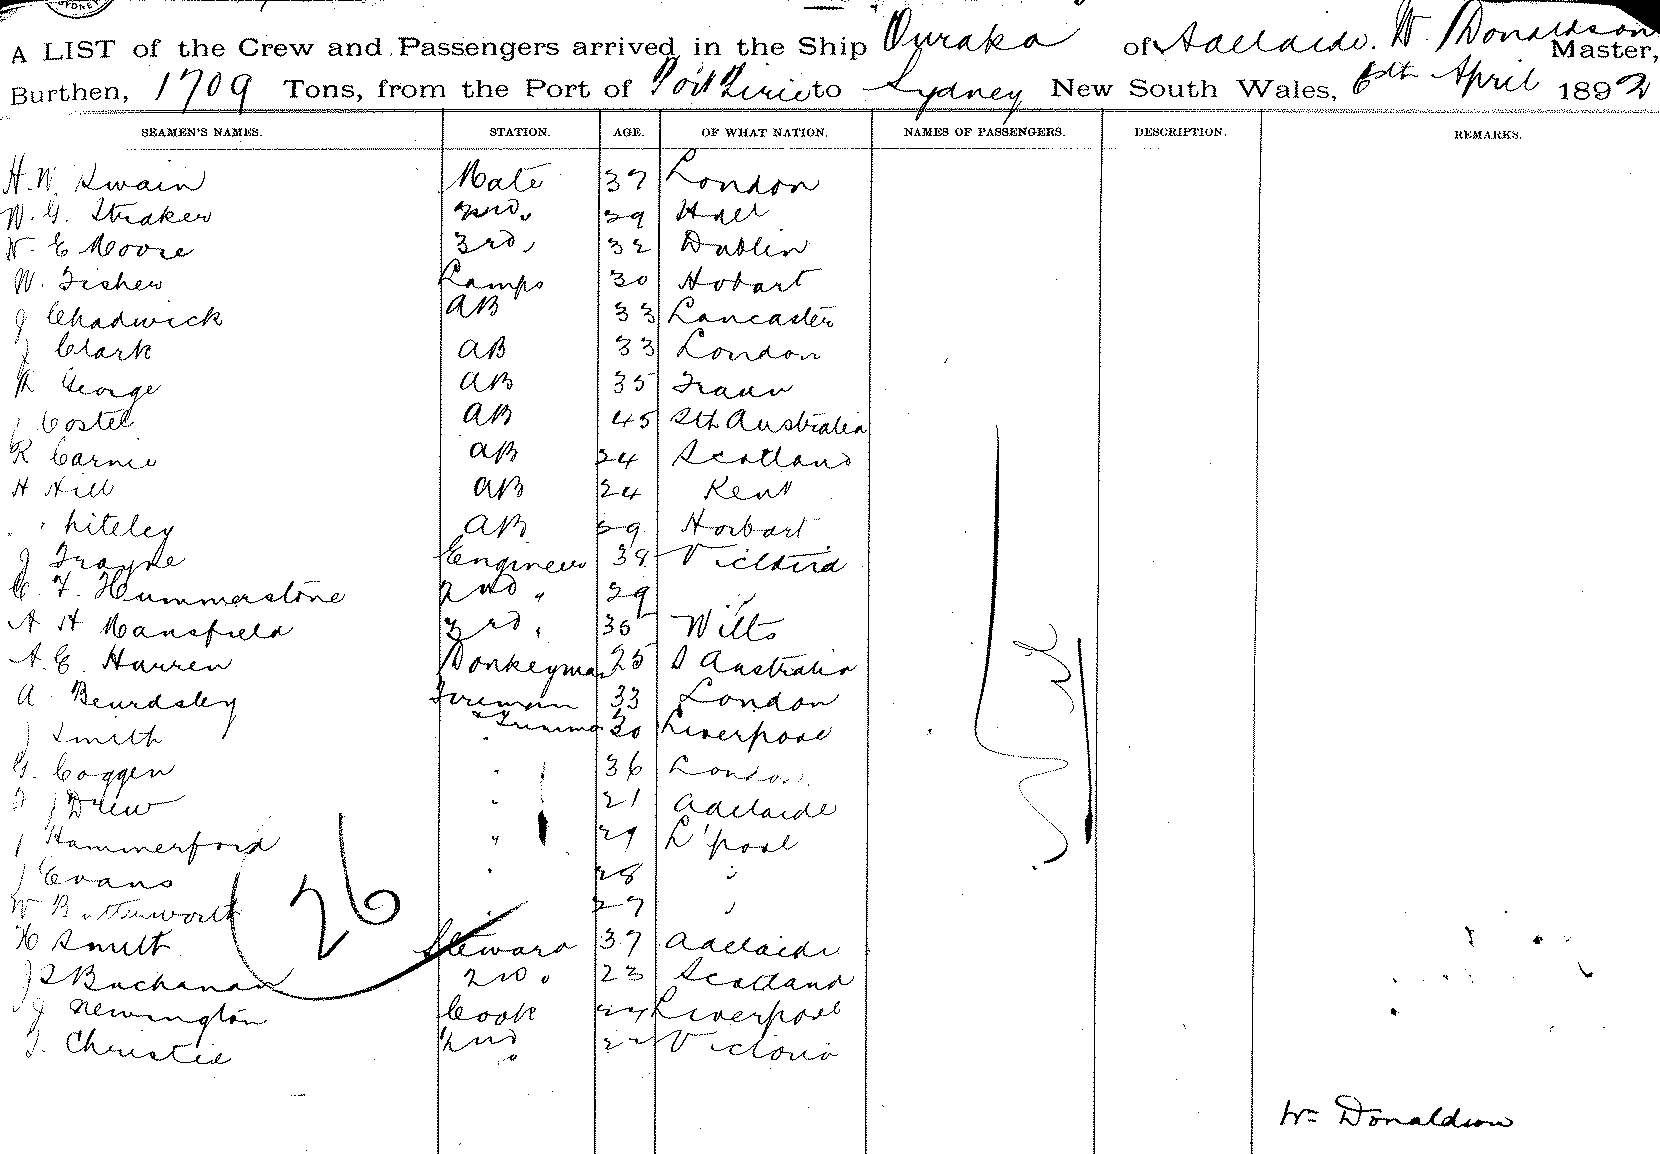 A LIST of the Crew and Passengers arrived in the Ship Ouraka of Adelaide. W. Donaldson Master,
Burthen, 1709 Tons, from the Port of Port Pirie to Sydney New South Wales, 6th April 1892
SEAMEN'S NAMES. STATION. AGE. OF WHAT NATION. NAMES OF PASSENGERS. DESCRIPTION. REMARKS.
H. W. Swain Mate 37 London
W. G. Straker 2nd. 29 Hull
W. E Moore 3rd, 32 Dublin
W. Fisher Lamps 30 Hobart
J Chadwick AB 33 Lancaster
J Clark AB 33 London
George AB 35
Costel AB 45 Sth Australia
R Carnie AB 24 Scotland
H Hill AB 24 Kent
hiteley AB 29 Horbart
J Trayne Engineer 38 Victoria
C. F. Hummerstone 2nd " 29 "
A H Mansfield 3rd " 36 Wilts
A. E. Harren Donkeyman 25 S Australia
A Beardsley Fireman 33 London
J Smith " & Trimmer 30 Liverpool
G. Coggen " 36 London
F J Drew " 21 Adelaide
J Hammerford " 29 L'pool
J Evans " 28 "
W Butterworth " 27 "
H Smith Steward 37 Adelaide
J S Buchanan 2nd " 23 Scotland
J Newington Cook Liverpool
T. Christie 2nd " Victoria
26
Wm Donaldson